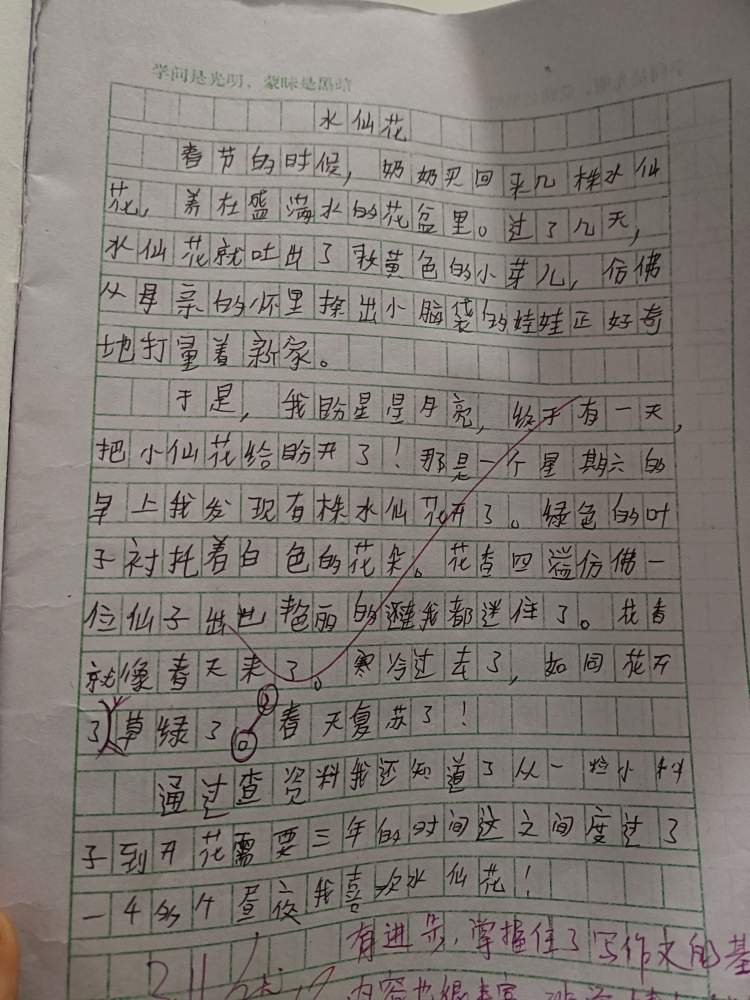 学问是光明，蒙昧是黑暗
水仙花
春节的时候，奶奶买回来几株水仙
花，养在盛满水的花盆里。过了几天，
水仙花就吐出了嫩黄色的小芽儿，仿佛
从母亲的怀里探出小脑袋的娃娃正好奇
地打量着新家。
于是，我盼星星月亮，终于有一天，
把小仙花给盼开了！那是一个星期六的
早上我发现有株水仙花开了。绿色的叶
子衬托着白色的花朵。花香四溢仿佛一
位仙子出世艳丽的让我都迷住了。花香
就像春天来了。寒冷过去了，如同花开
了草绿了。春天复苏了！
通过查资料我还知道了从一粒小种
子到开花需要三年的时间这之间度过了
一4的4昼夜我喜欢水仙花！
有进步，掌握住了写作文的基
内容也很丰富